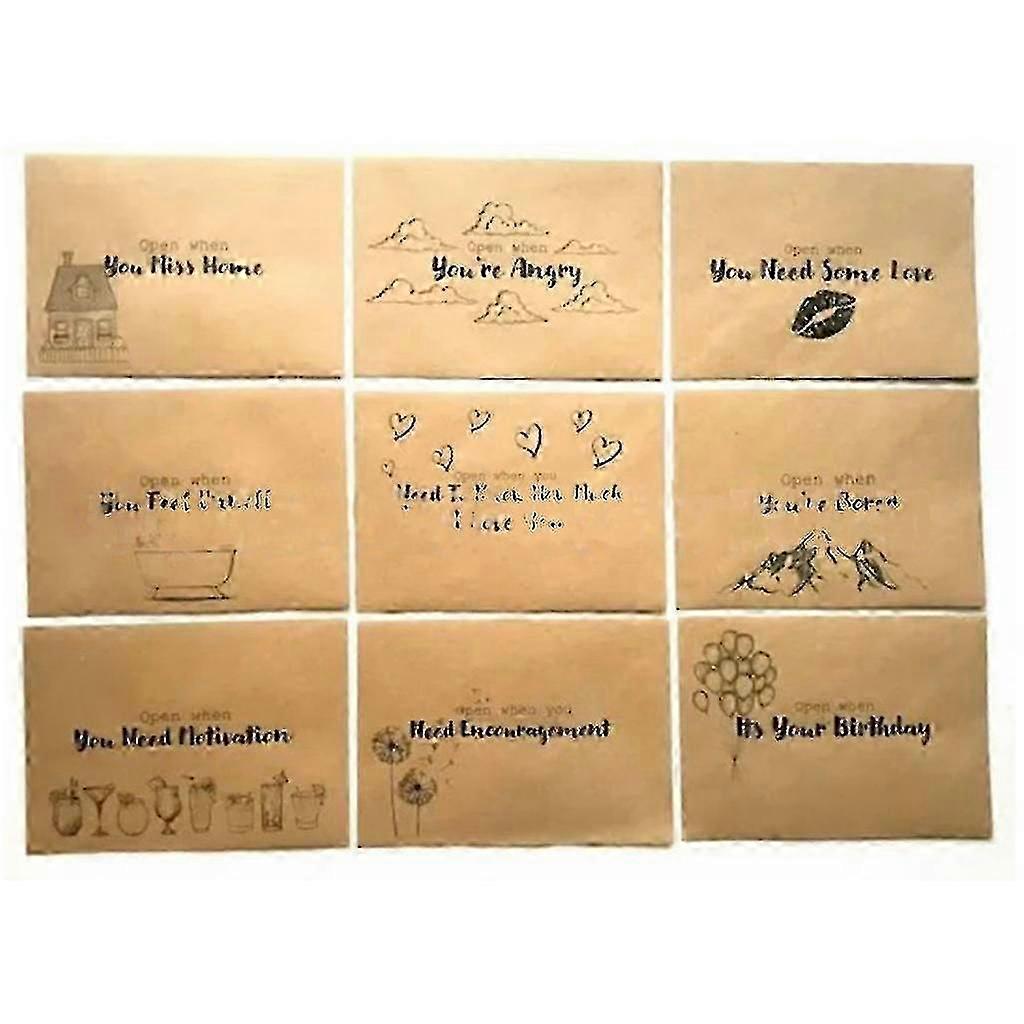 Open when
You Miss Home
Open when
You're Angry
Open when
You Need Some Love
Open when
You Feel Unwell
Open when you
Need To Know How Much
I Love You
Open when
You're Bored
Open when
You Need Motivation
Open when you
Need Encouragement
Open when
It's Your Birthday